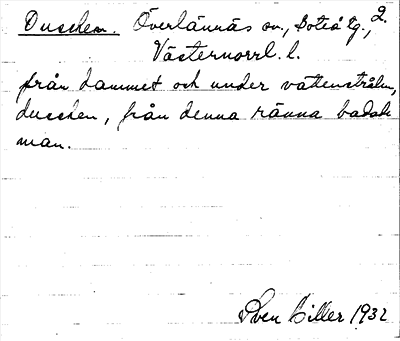 Duschen. Överlännäs sn., Boteå tg., 2.
Västernorrl. l.
från dammet och under vattenstrålen,
duschen, från denna ränna badade
man.
Sven Hiller 1932